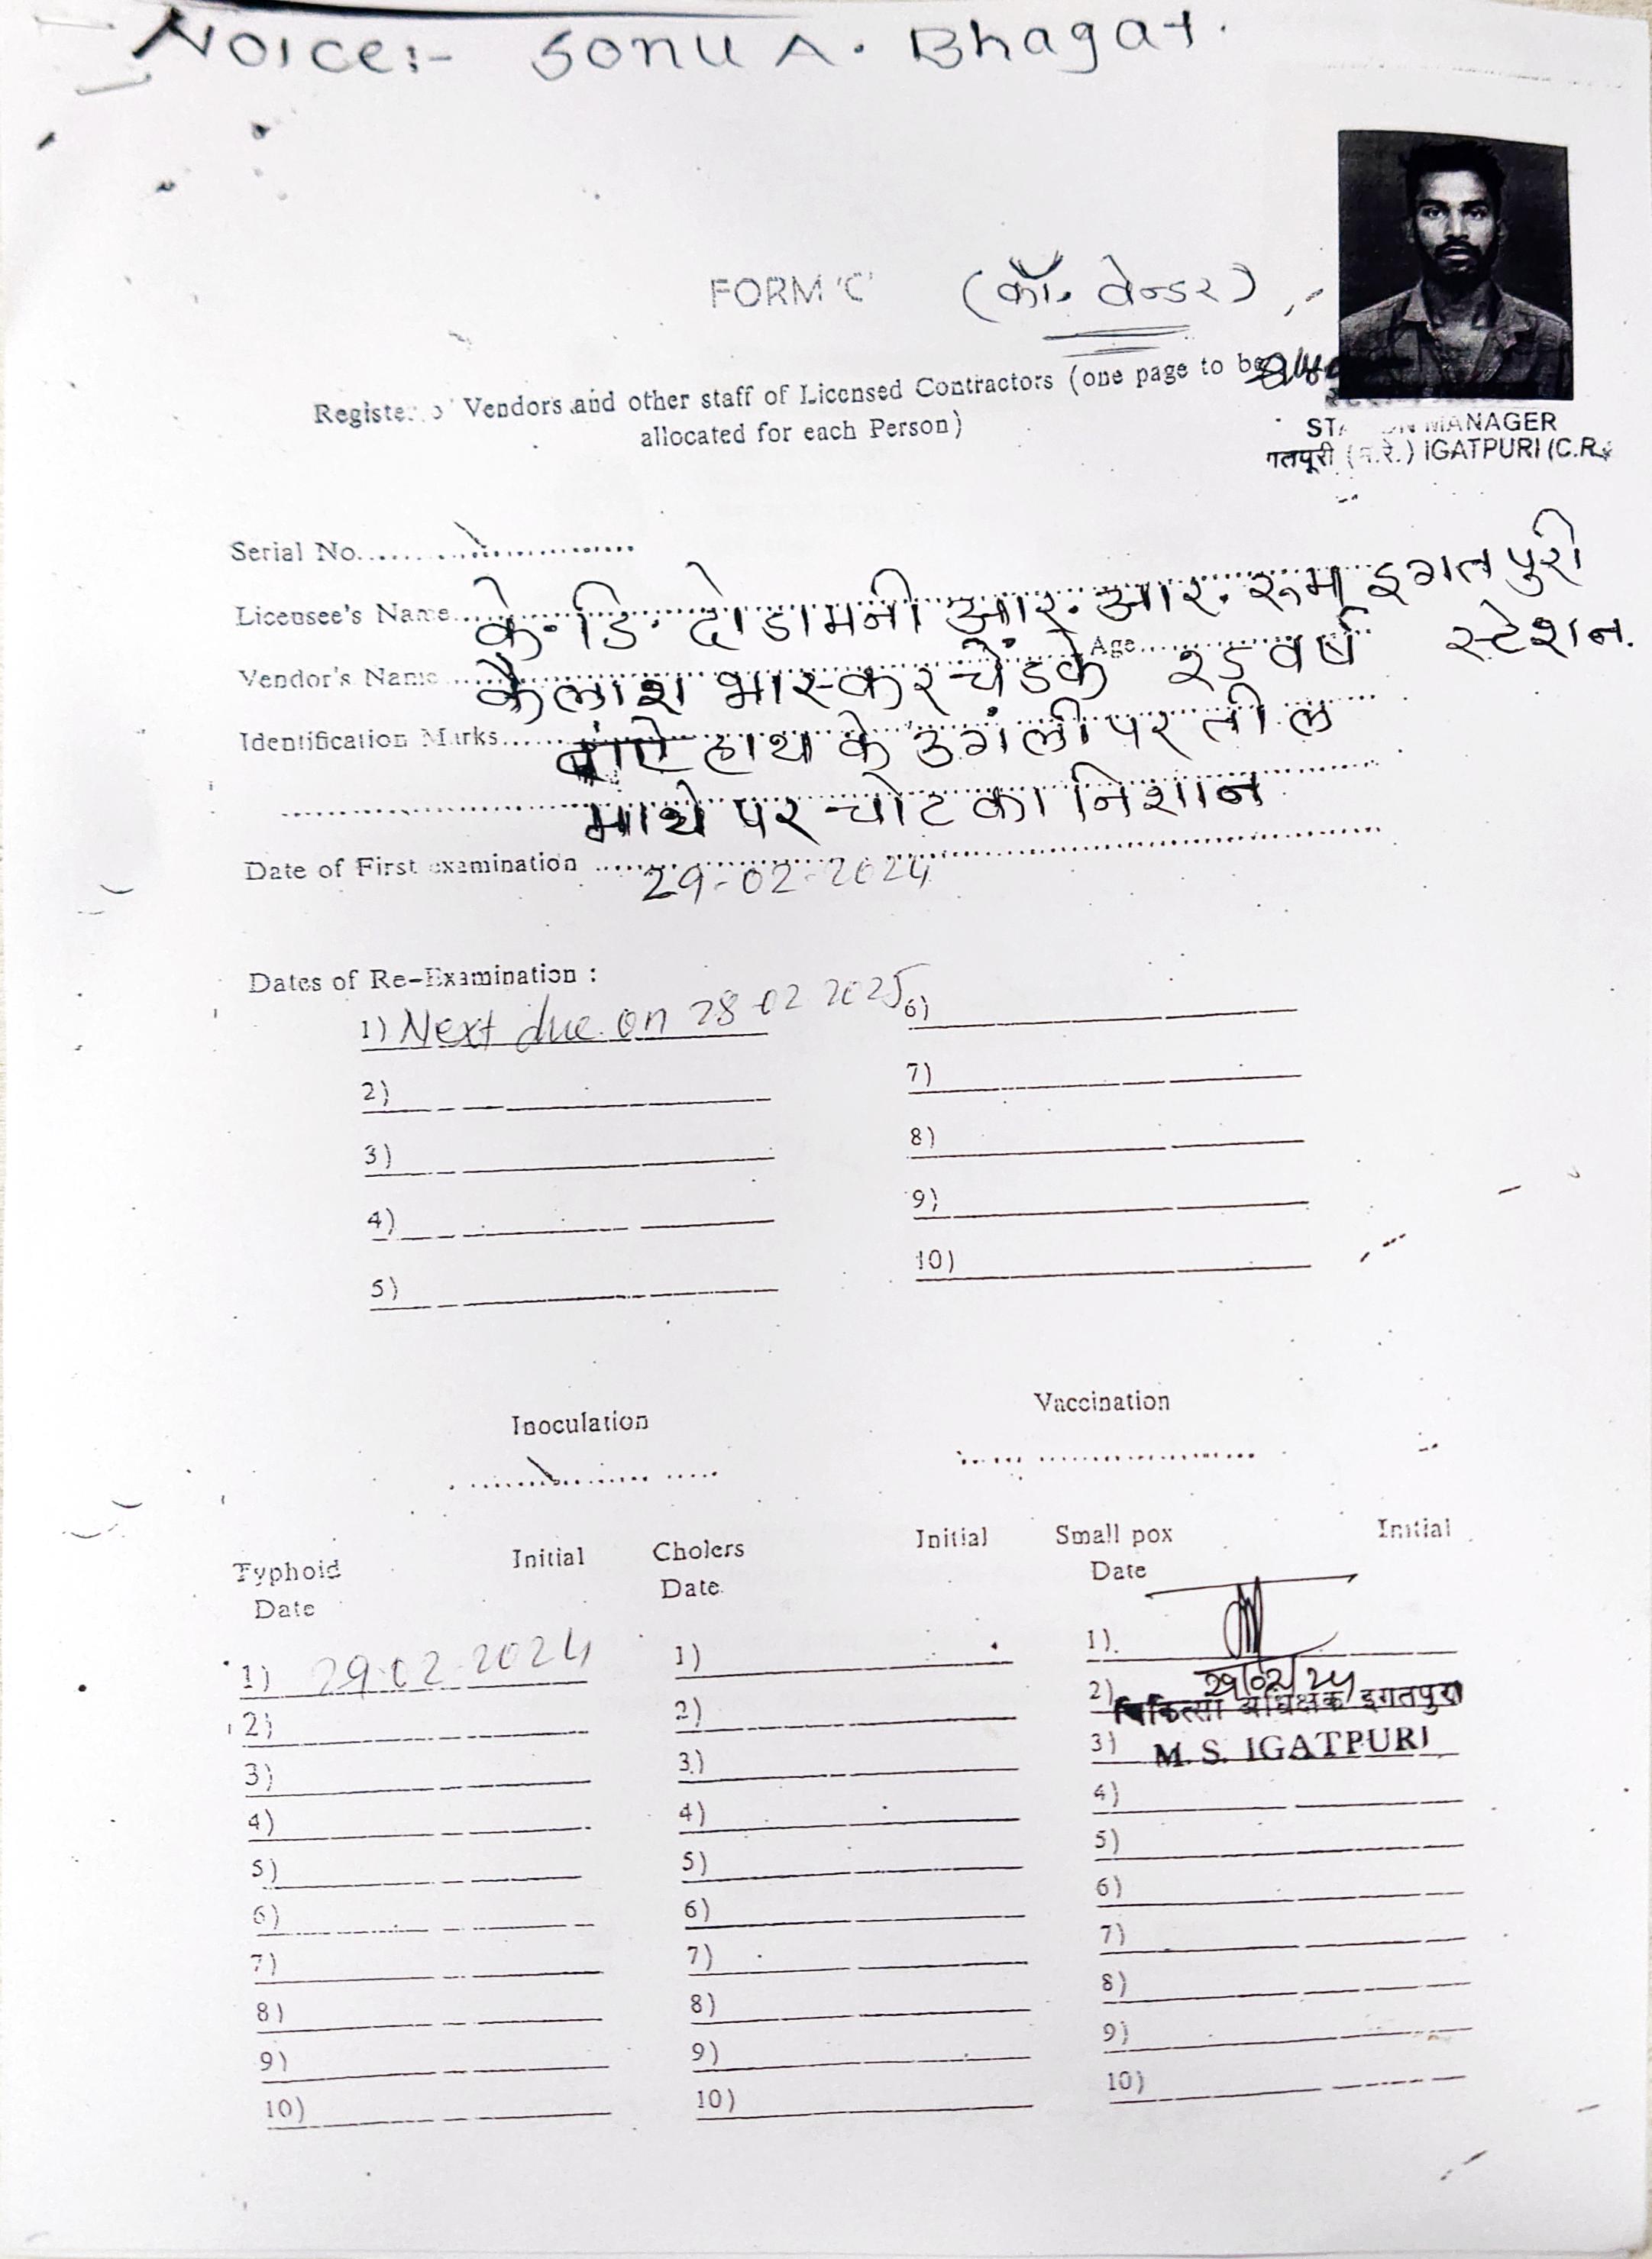 Noice:- Sonu A. Bhagat.
FORM 'C' (कॉ. वेन्डर)
Register of Vendors and other staff of Licensed Contractors (one page to be
allocated for each Person)
STATION MANAGER
गतपूरी (म.रे.) IGATPURI (C.R.
Serial No.
Licensee's Name के. डि. दोडामनी आर. आर. रूम इगतपुरी
स्टेशन.
Vendor's Name कैलाश भास्कर चेंडके Age २५ वर्ष
Identification Marks बांऐ हाथ के उगंली पर तील
माथे पर चोट का निशान
Date of First examination 29-02-2024
Dates of Re-Examination :
1) Next due on 28 02 2025 6)
2) 7)
3) 8)
4) 9)
5) 10)
Inoculation Vaccination
Typhoid Initial Cholers Initial Small pox Initial
Date Date Date
1) 29-02-2024 1) 1)
2) 2) 2) 29/02/24
चिकित्सा अधिक्षक इगतपुरी
3) 3) 3) M. S. IGATPURI
4) 4) 4)
5) 5) 5)
6) 6) 6)
7) 7) 7)
8) 8) 8)
9) 9) 9)
10) 10) 10)